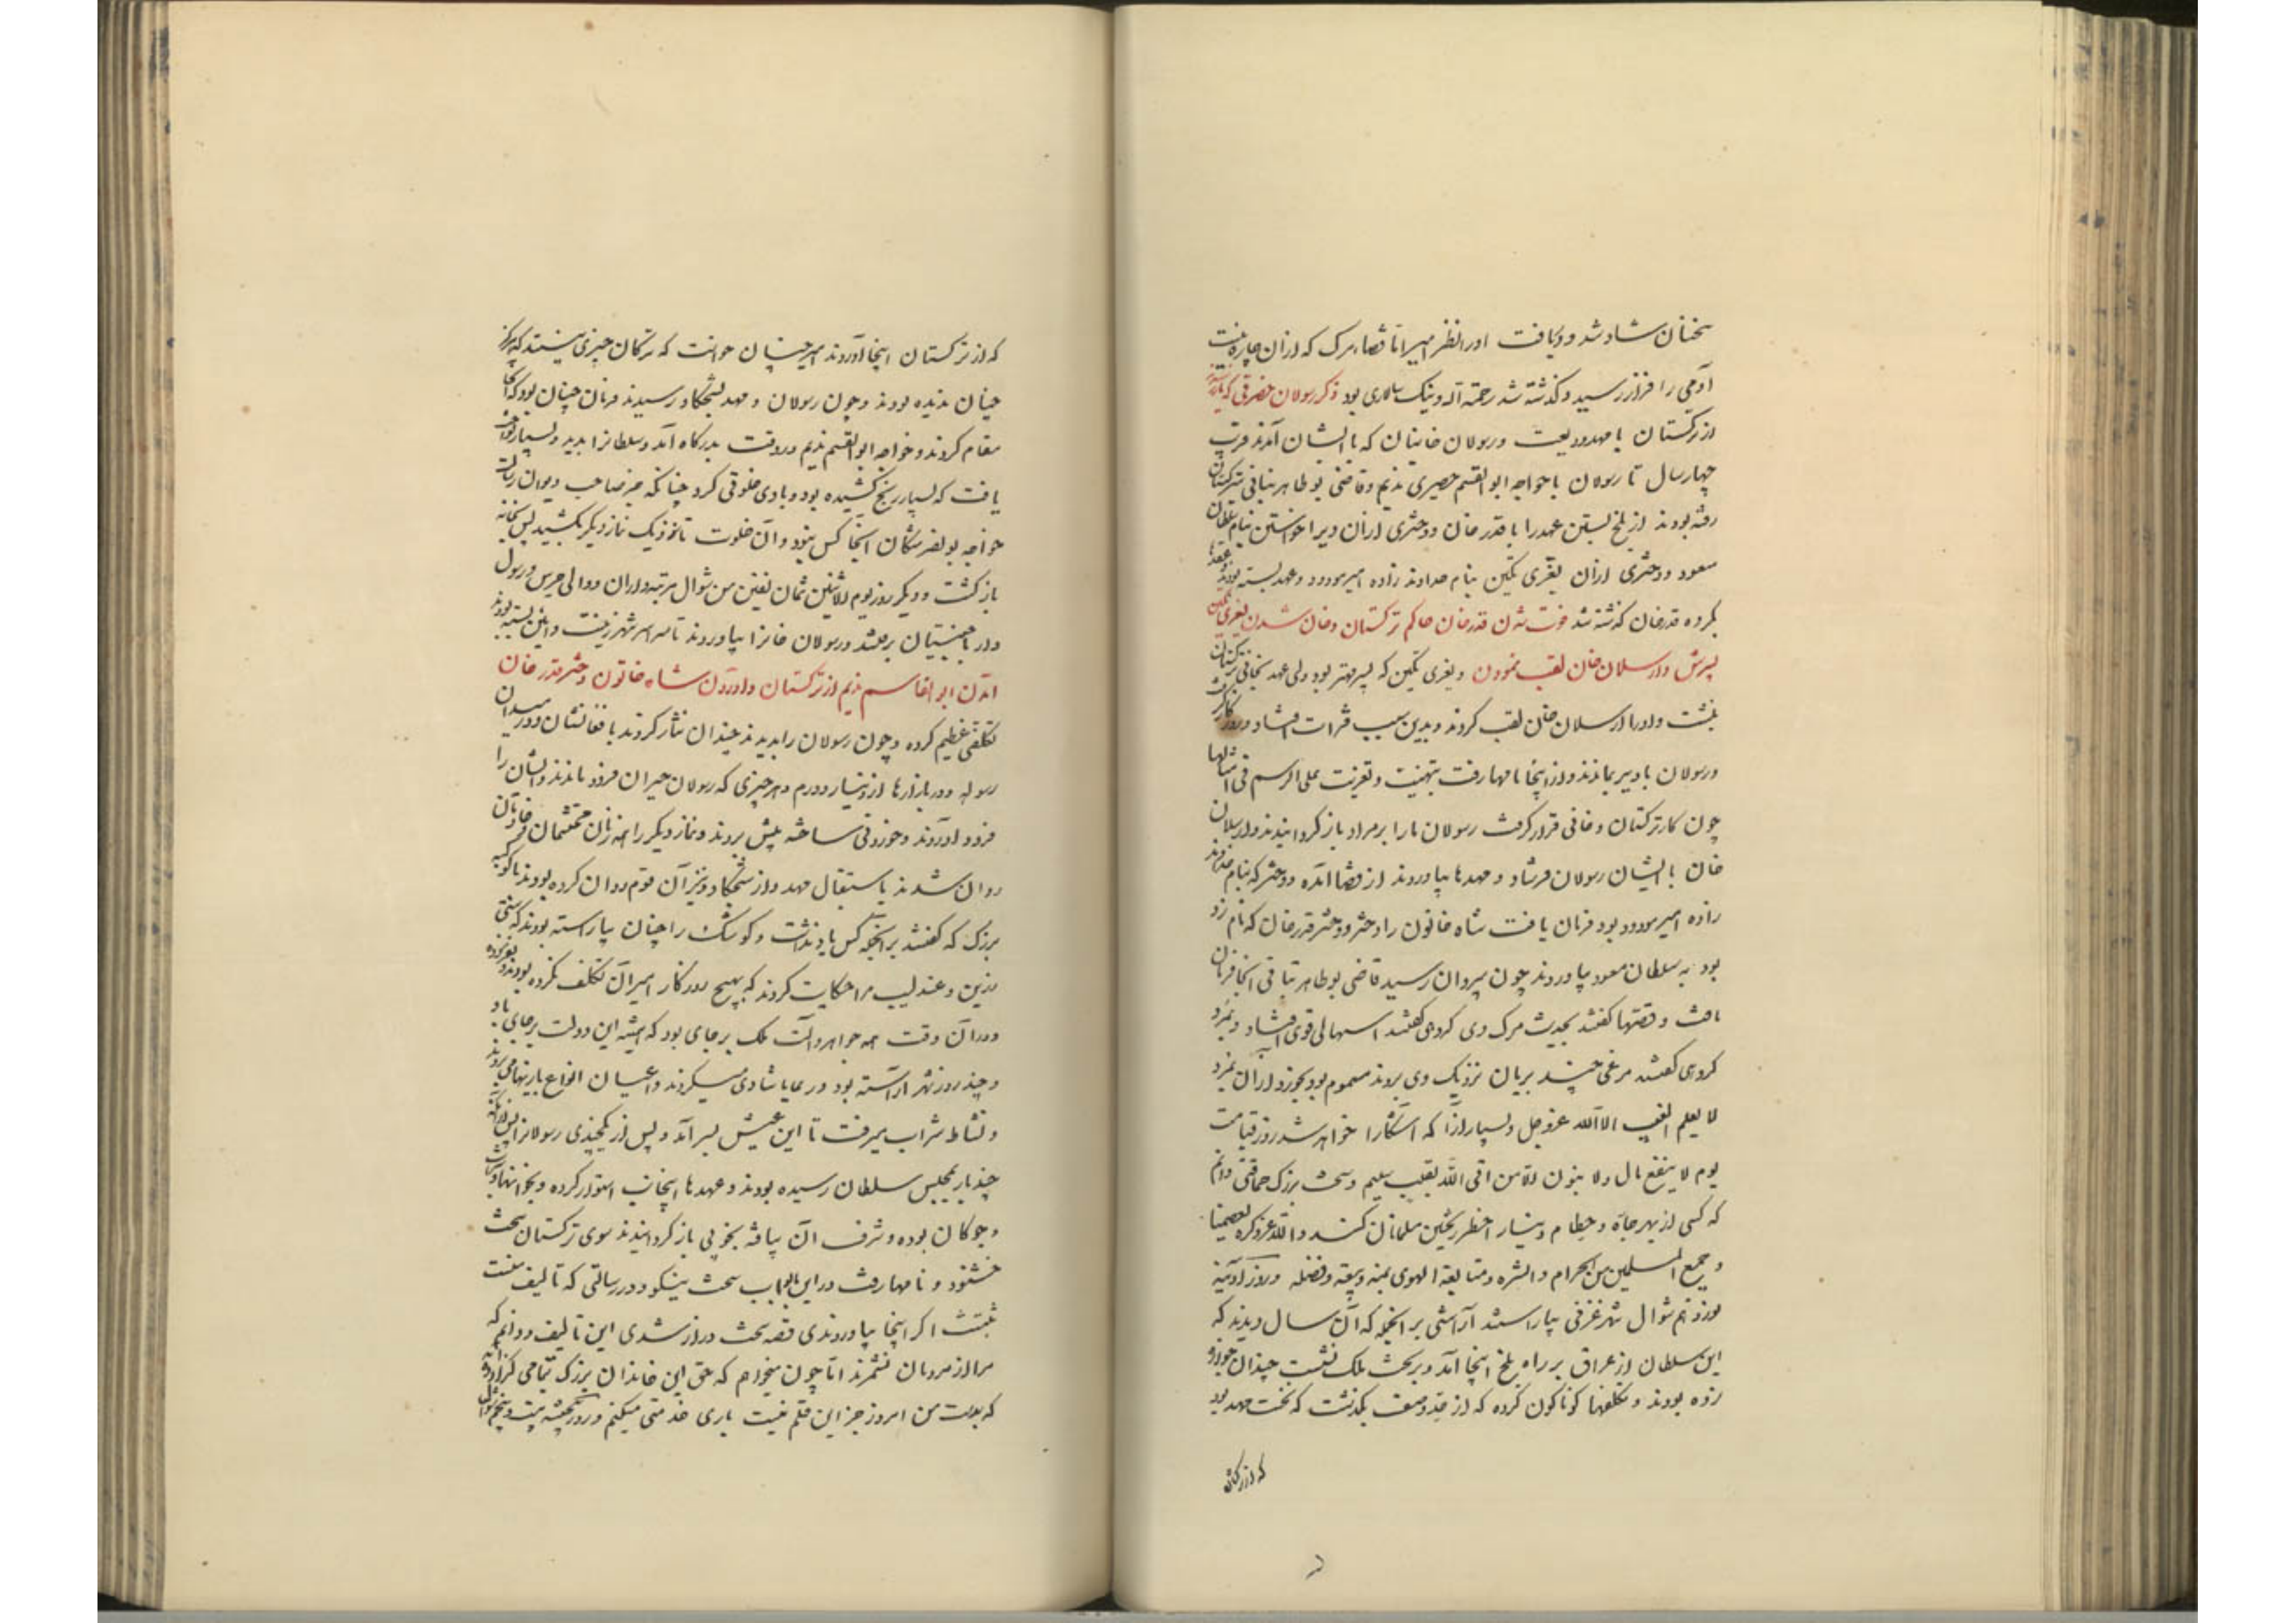 سخنان شاد شد و دریافت اورا نظر امیر اما قضاء مرگ که از آن چاره نیست
آدمی را فراز رسید و گذشته شد رحمة الله و نیک سالاری بود ذکر رسولان حضرتی که باز رسیدند
از ترکستان با مهد و دیعت و رسولان خانیان که با ایشان آمدند قرب
چهار سال تا رسولان با خواجه ابو القسم حصیری ندیم و قاضی بو طاهر تبانی بترکستان
رفته بودند از بلخ بستن عهد را با قدر خان و دختری از آن ویرا خواستن بنام سلطان
مسعود و دختری از آن بغری تکین بنام خداوند زاده امیر مودود و عهد بسته بودند و عقدها
بکرده قدر خان گذشته شد فوت شدن قدر خان حاکم ترکستان و خان شدن بغری تکین
پسرش و ارسلان خان لقب نمودن و بغری تکین که پسر مهتر بود ولی عهد بخانی ترکستان
بنشست و اورا ارسلان خان لقب کردند و بدین سبب فترات افتاد و روزگار گرفت
و رسولان با دیر بماندند و از اینجا نامها رفت بتهنیت و تعزیت علی الرسم فی امثالها
چون کار ترکستان و خانی قرار گرفت رسولان ما را بر مراد باز گردانیدند و ارسلان
خان با ایشان رسولان فرستاد و مهدها بیاوردند از قضا آمده دختر که بنام خداوند
زاده امیر مودود بود فرمان یافت شاه خاتون را دختر قدر خان که نام زد
بود به سلطان مسعود بیاوردند چون بپروان رسید قاضی بو طاهر تبانی آنجا فرمان
یافت و قصتها گفتند بحدیث مرگ وی گروهی گفتند اسهالی قوی افتاد و بمرد
گروهی گفتند مرغی چند بریان نزدیک وی بردند مسموم بود بخورد از آن بمرد
لا یعلم الغیب الا الله عز و جل و بسیار رازا که آشکارا خواهد شد روز قیامت
یوم لا ینفع مال و لا بنون الا من اتی الله بقلب سلیم و سخت بزرگ حماقتی دانم
که کسی از بهر جاه و حطام دنیا را خطر ریختن مسلمانان کند و الله عز ذکره یعصمنا
و جمیع المسلمین من الحرام و الشره و متابعة الهوی بمنه و سعة فضله و روز آدینه
نوزدهم شوال شهر غزنی بیاراستند آراستنی بر آنجمله که آن سال دیدند که
این سلطان از عراق بر راه بلخ اینجا آمد و بر تخت ملک نشست چندان خوازه
زده بودند و تکلفها گوناگون کرده که از حد وصف بگذشت که نخست مهد بود
که از ترکستان
که از ترکستان اینجا آوردند امیر چنان خواست که ترکان چیزی بینند که هرگز
چنان ندیده بودند و چون رسولان و مهد بشجکاو رسیدند فرمان چنان بود که آنجا
مقام کردند و خواجه ابو القسم ندیم در وقت بدرگاه آمد و سلطانرا بدید و بسیار نواخت
یافت که بسیار رنج کشیده بود و با وی خلوتی کرد چنانکه جز صاحب دیوان رسالت
خواجه بو نصر مشکان آنجا کس نبود و آن خلوت تا نزدیک نماز دیگر بکشید پس بخانه
باز گشت و دیگر روز یوم الاثنین ثمان بقین من شوال مرتبه داران و والی حرس و رسول
دار با جنیبتان برفتند و رسولان خانرا بیاوردند تا سراسر شهر زینت و آئین بسته بودند
آمدن ابو القاسم ندیم از ترکستان و آوردن شاه خاتون دختر قدر خان
تکلفی عظیم کرده و چون رسولان را بدیدند چندان نثار کردند بافغانشان و در میدان
رسوله و در بازارها از دینار و درم و هر چیزی که رسولان حیران فرو ماندند و ایشان را
فرود آوردند و خوردنی ساخته پیش بردند و نماز دیگر را همه زنان محتشمان و خادمان
روان شدند باستقبال مهد و از شجکاو نیز آن قوم روان کرده بودند با کوکبه
بزرگ که گفتند بر آنجمله کس یاد نداشت و کوشک را چنان بیاراسته بودند که ستی
زرین و عندلیب مرا حکایت کردند که بهیچ روزگار امیر آن تکلف نکرده بودند و نفرموده
و در آن وقت همه جواهر و آلت ملک بر جای بود که همیشه این دولت بر جای باد
و چند روز شهر آراسته بود و رعایا شادی میکردند و اعیان انواع بازیها می بردند
و نشاط شراب میرفت تا این عیش بسر آمد و پس از یکچندی رسولانرا پس از آنکه
چند بار بمجلس سلطان رسیده بودند و عهدها اینجانب استوار کرده و بخوانها و شراب
و چوگان بوده و شرف آن بیافته بخوبی باز گردانیدند سوی ترکستان سخت
خشنود و نامها رفت در این باب سخت نیکو و در رسالتی که تالیف منست
ثبتست اگر اینجا بیاوردندی قصه سخت دراز شدی این تالیف و دانم که
مرا از مردمان نشمرند اما چون میخواهم که حق این خاندان بزرگ بتمامی گزارده آید
که بدست من امروز جز این قلم نیست باری خدمتی میکنم و روز پنجشنبه بیست و پنجم شوال